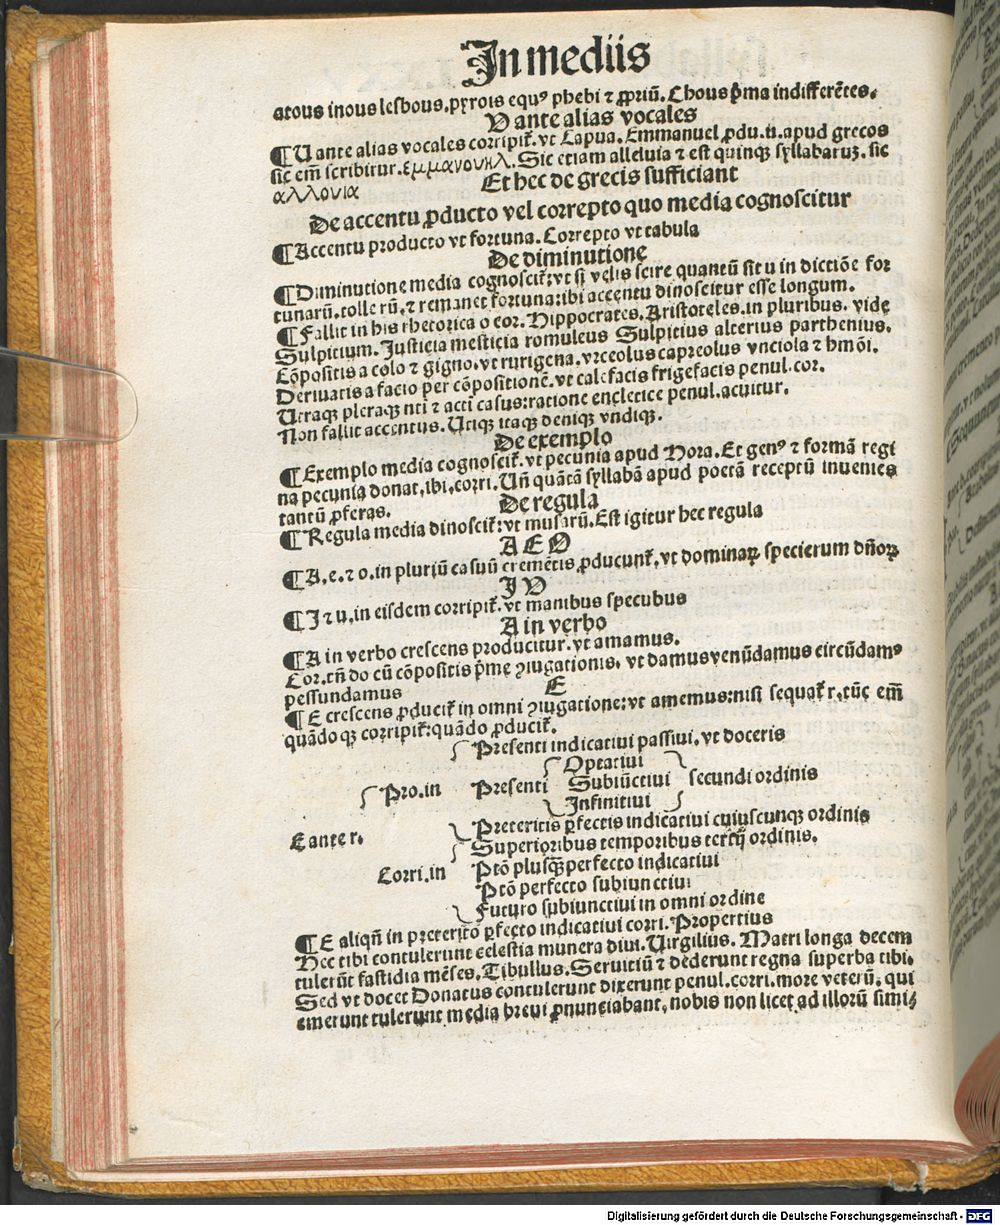 In mediis
atous inous lesbous. pyrois equꝰ phebi ⁊ ꝓpriū. Chous p̄ma indifferētes.
V ante alias vocales
¶ U ante alias vocales corripit̄. vt Capua. Emmanuel ꝓdu. u. apud grecos
sic em̄ scribitur. εμμανουηλ. Sic etiam alleluia ⁊ est quinqꝫ syllabaruꝫ. sic
αλλουια
Et hec de grecis sufficiant
De accentu ꝓducto vel correpto quo media cognoscitur
¶ Accentu producto vt fortuna. Correpto vt tabula
De diminutione
¶ Diminutione media cognoscit̄: vt si velis scire quantū sit u in dictiōe for
tunarū. tolle rū. ⁊ remanet fortuna: ibi accentu dinoscitur esse longum.
¶ Fallit in his rhetorica o cor. Hippocrates. Aristoteles. in pluribus. vide
Sulpicium. Justicia mesticia romuleus Sulpitius alterius parthenius.
Cōpositis a colo ⁊ gigno. vt rurigena. vrceolus capreolus vnciola ⁊ hmōi.
Deriuatis a facio per cōpositionē. vt calefacis frigefacis penul. cor.
Utraqꝫ pleraqꝫ nti ⁊ acti casus: ratione encletice penul. acuitur.
Non fallit accentus. Utiqꝫ itaqꝫ deniqꝫ vndiqꝫ.
De exemplo
¶ Exemplo media cognoscit̄. vt pecunia apud Hora. Et genꝰ ⁊ formā regi
na pecunia donat, ibi, corri. Uñ quātā syllabā apud poetā receptū inuenies
tantū ꝓferas.
De regula
¶ Regula media dinoscit̄: vt musarū. Est igitur hec regula
A E O
¶ A. e. ⁊ o. in pluriū casuū cremētis ꝓducunt̄, vt dominaꝝ specierum dñoꝝ
I V
¶ I ⁊ u. in eisdem corripit̄. vt manibus specubus
A in verbo
¶ A in verbo crescens producitur. vt amamus.
Cor. tñ do cū cōpositis p̄me ꝯiugationis, vt damus venūdamus circūdamꝰ
pessundamus
E
¶ E crescens ꝓducit̄ in omni ꝯiugatione: vt amemus: nisi sequat̄ r, tūc em̄
quādoqꝫ corripit̄: quādo ꝓducit̄.
Presenti indicatiui passiui. vt doceris
Optatiui
Pro. in Presenti Subiūctiui secundi ordinis
Infinitiui
Preteritis ꝑfectis indicatiui cuiuscunqꝫ ordinis
E ante r.
Superioribus temporibus tertij ordinis.
Ptō plusqꝫperfecto indicatiui
Corri. in
Ptō perfecto subiunctiui
Futuro subiunctiui in omni ordine
¶ E aliqñ in preterito ꝑfecto indicatiui corri. Propertius
Hec tibi contulerunt celestia munera diui. Uirgilius. Matri longa decem
tulerūt fastidia mēses. Tibullus. Seruitiū ⁊ dederunt regna superba tibi.
Sed vt docet Donatus contulerunt dixerunt penul. corri. more veterū. qui
emerunt tulerunt media breui ꝓnunciabant, nobis non licet ad illorū simi⸗
Digitalisierung gefördert durch die Deutsche Forschungsgemeinschaft - DFG